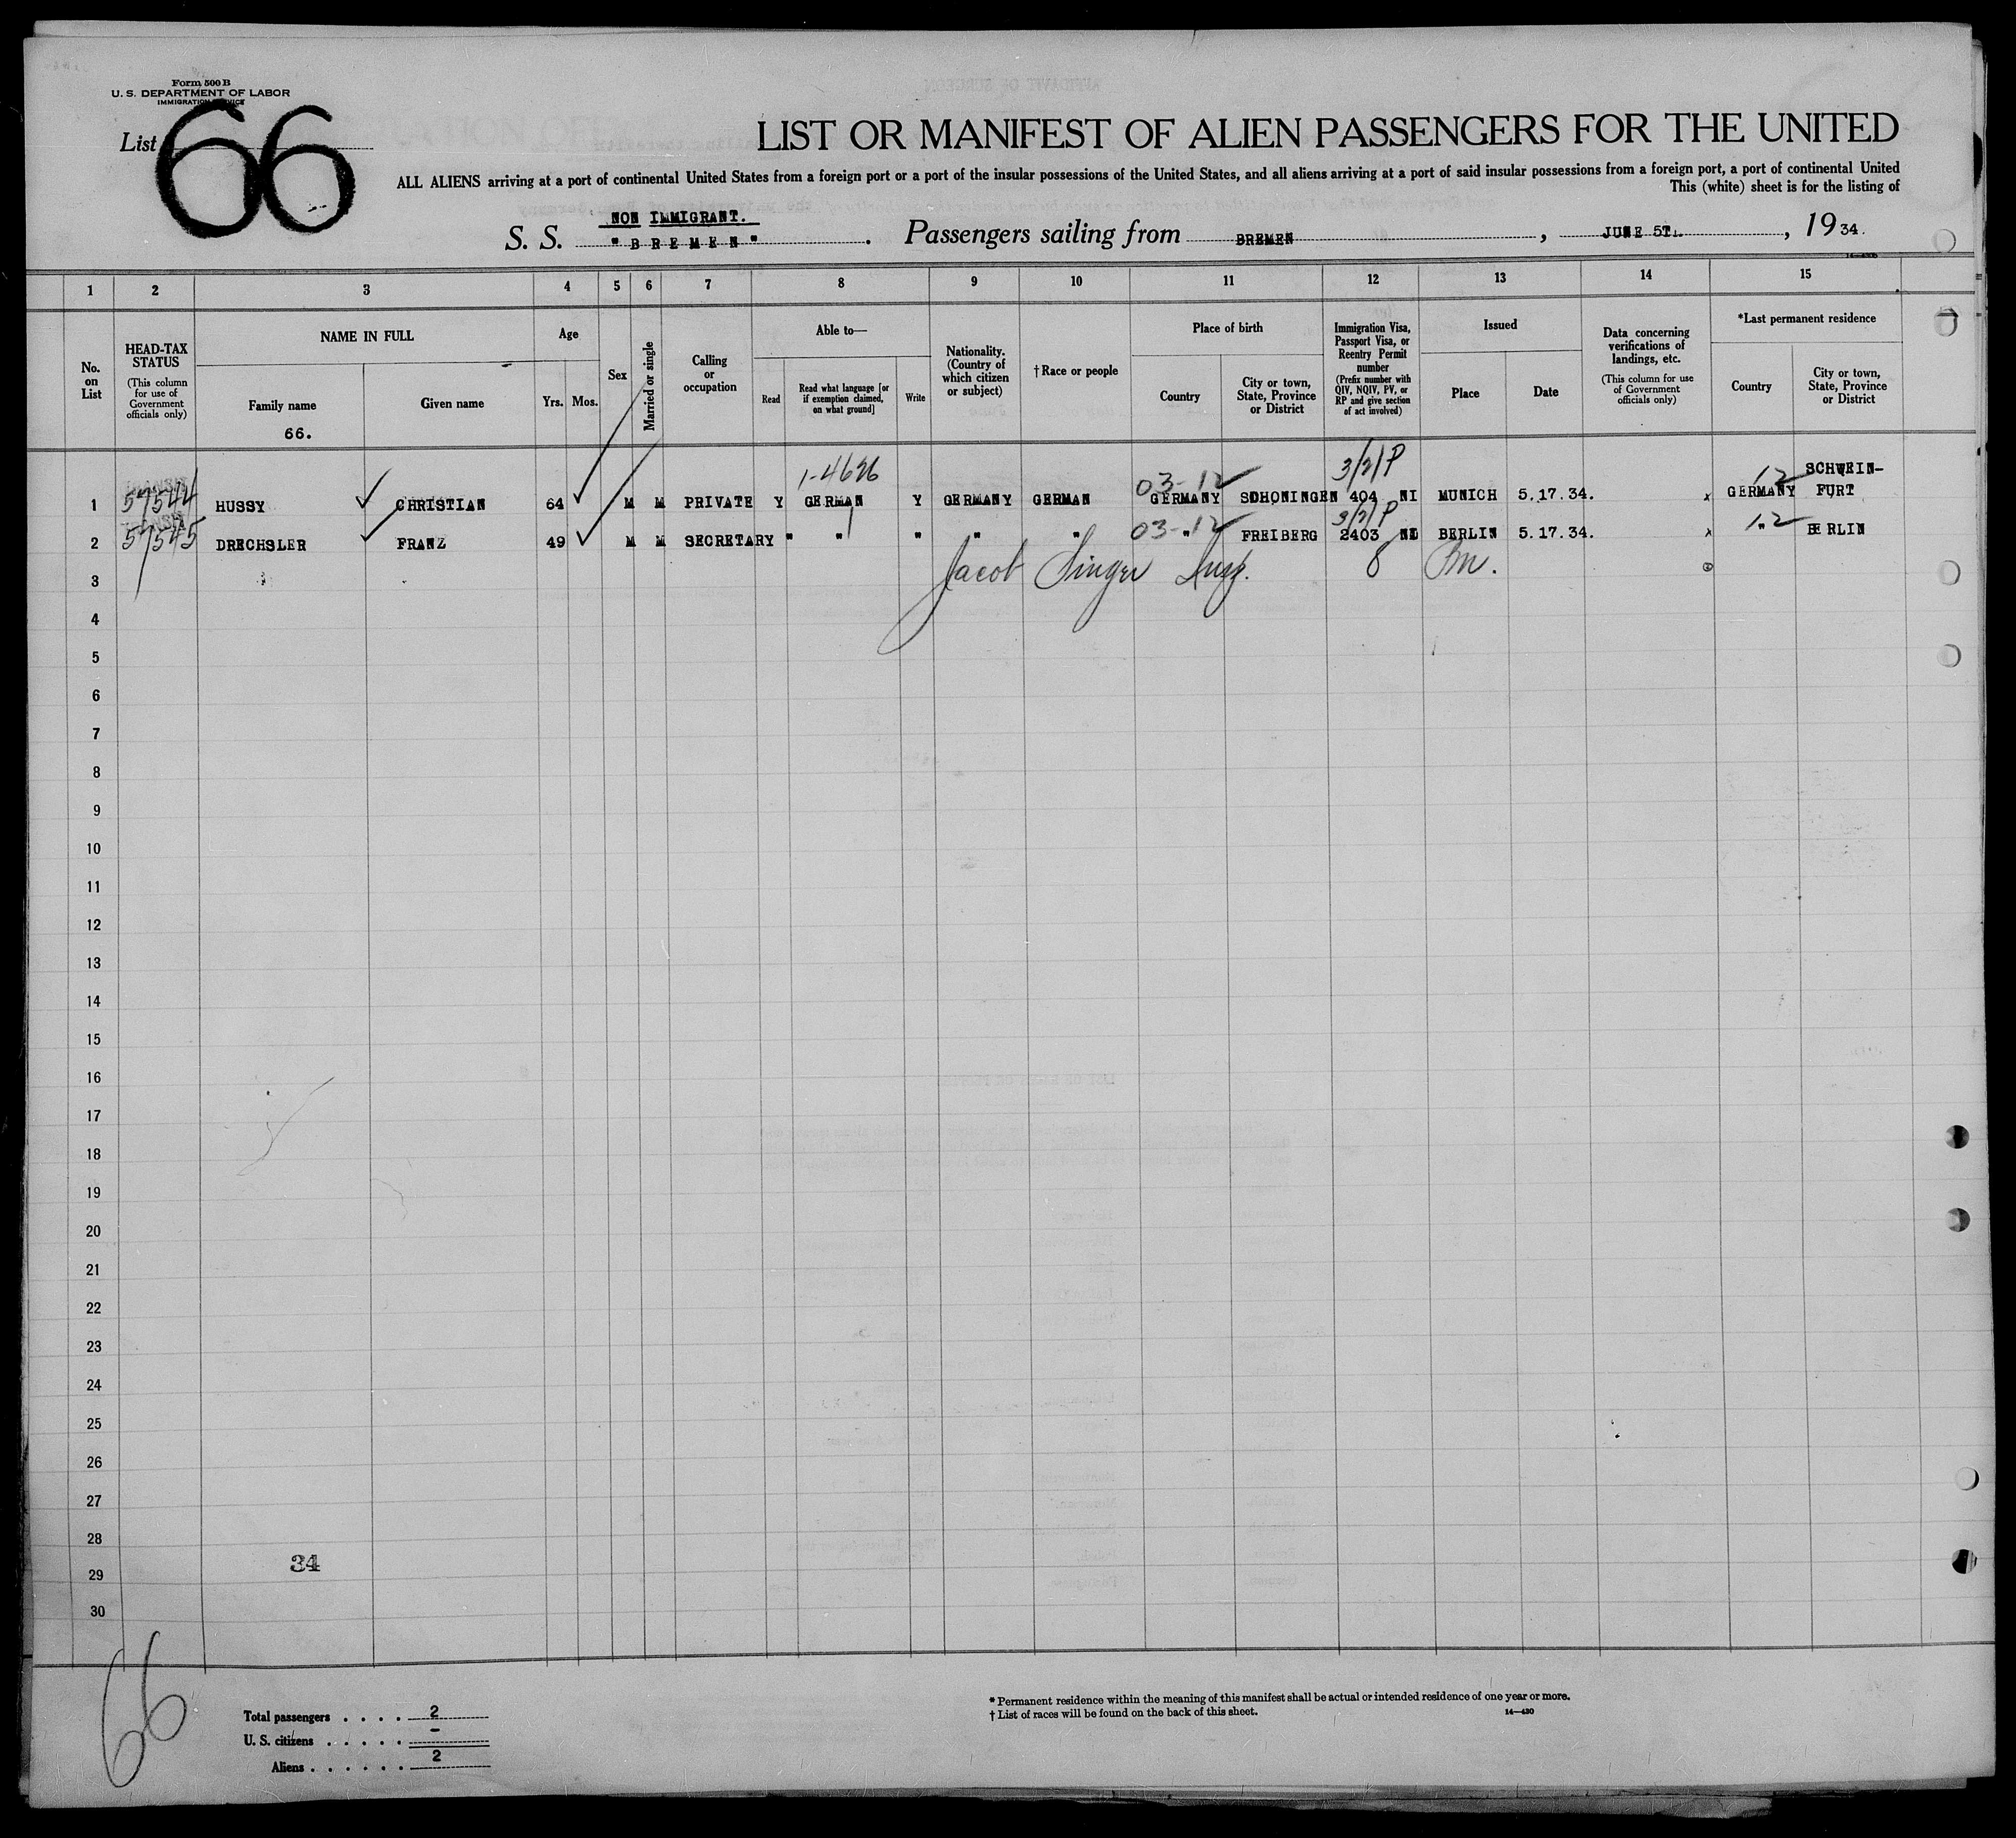 Form 500 B
U. S. DEPARTMENT OF LABOR
IMMIGRATION SERVICE
List 66
LIST OR MANIFEST OF ALIEN PASSENGERS FOR THE UNITED
ALL ALIENS arriving at a port of continental United States from a foreign port or a port of the insular possessions of the United States, and all aliens arriving at a port of said insular possessions from a foreign port, a port of continental United
This (white) sheet is for the listing of
NON IMMIGRANT.
S. S. "BREMEN". Passengers sailing from BREMEN, JUNE 5T., 1934.
1 2 3 4 5 6 7 8 9 10 11 12 13 14 15
No. on List
HEAD-TAX STATUS
(This column for use of Government officials only)
NAME IN FULL
Family name
66.
Given name
Age
Yrs. Mos.
Sex
Married or single
Calling or occupation
Able to—
Read
Read what language [or if exemption claimed, on what ground]
Write
Nationality. (Country of which citizen or subject)
†Race or people
Place of birth
Country
City or town, State, Province or District
Immigration Visa, Passport Visa, or Reentry Permit number
(Prefix number with QIV, NQIV, PV, or RP and give section of act involved)
Issued
Place
Date
Data concerning verifications of landings, etc.
(This column for use of Government officials only)
*Last permanent residence
Country
City or town, State, Province or District
1-4626 03-12 3/2/P 12 SCHWEIN-
1 57544 HUSSY CHRISTIAN 64 M M PRIVATE Y GERMAN Y GERMANY GERMAN GERMANY SDHONINGEN 404 NI MUNICH 5.17.34. x GERMANY FURT
03-12 3/2/P 12
2 57545 DRECHSLER FRANZ 49 M M SECRETARY " " " " " " FREIBERG 2403 NI BERLIN 5.17.34. x " BERLIN
3 Jacob Singer Insp. 8 Pm.
4
5
6
7
8
9
10
11
12
13
14
15
16
17
18
19
20
21
22
23
24
25
26
27
28
29 34
30
66
Total passengers . . . . 2
U. S. citizens . . . . . -
Aliens . . . . . . 2
* Permanent residence within the meaning of this manifest shall be actual or intended residence of one year or more.
† List of races will be found on the back of this sheet. 14—430